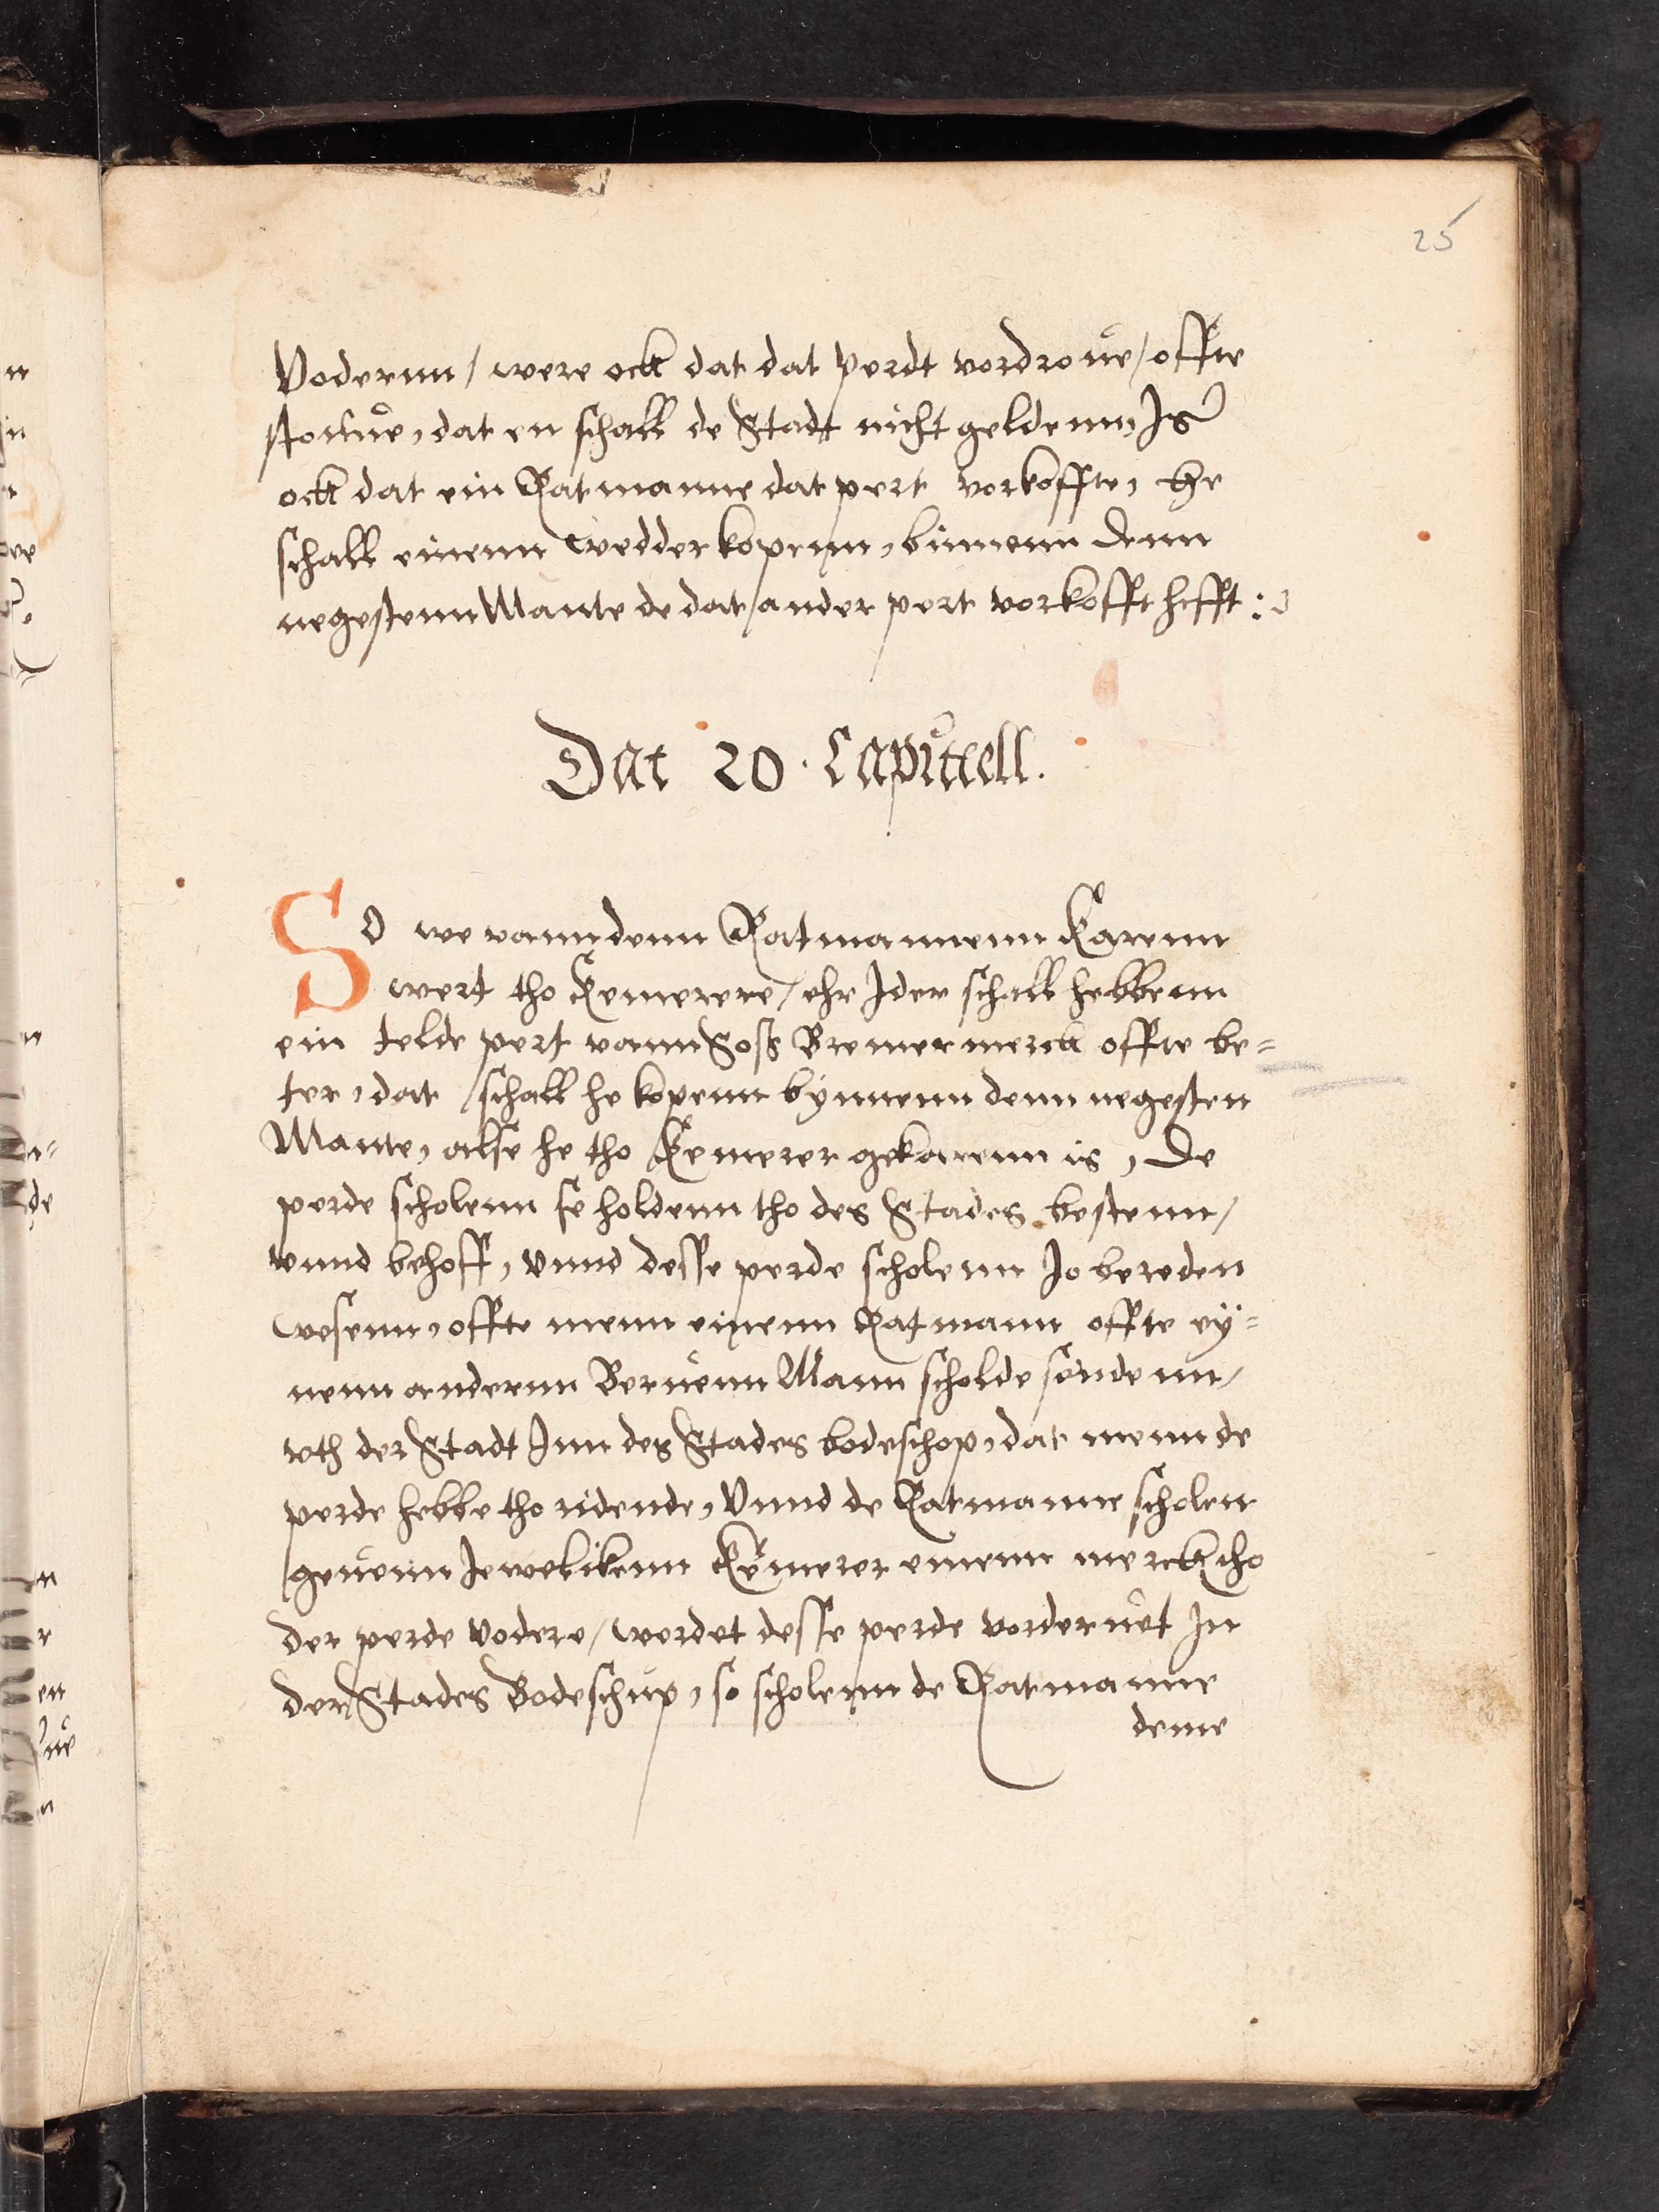 25
Vodernn / were ock dat dat perdt vordroue / offte
storue, dat en schall de Stadt nicht geldenn, Is
ock dat ein Ratmanne dat pert vorkoffte, he
schall einenn wedder kopenn, binnenn denn
negestenn Mante de dat ander pert vorkofft hefft :
Dat 20. Capittell.
So we vann denn Ratmannenn Karenn
wert tho Kemerere / ehr Ider schall hebbenn
ein telde pert vann Soß Bremer merck offte be=
ter, dat schall he kopenn bynnenn denn negesten
Mante, alse he tho Kemerer gekarenn is, De
perde scholenn se holdenn tho des Stades bestenn /
vnnd behoff, vnnd desse perde scholenn Io bereden
wesenn, offte menn einenn Ratmann offte ey=
nenn andernn Beruenn Mann scholde sendenn /
vth der Stadt Inn des Stades bodeschop, dat menn de
perde hebbe tho ridende, Vnnd de Ratmanne scholen
geuenn Iewelikenn Kemerer einenn merck tho
der perde vodere / werdet desse perde vorderuet In
der Stades Bodeschup, so scholenn de Ratmanne
deme